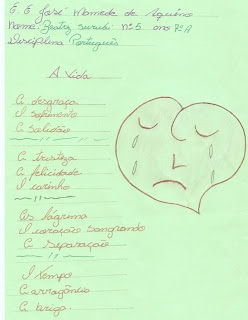 E. E José: Mamede de Aquino
Nome: Beatriz surubi: Nº5. ano 7ºA
Disciplina Português
A Vida
A desgraça
O sofrimento
A solidão
A tristeza
A felicidade
O carinho
As lágrima
O coração sangrando
A separação
O tempo
A arrogância
A briga.